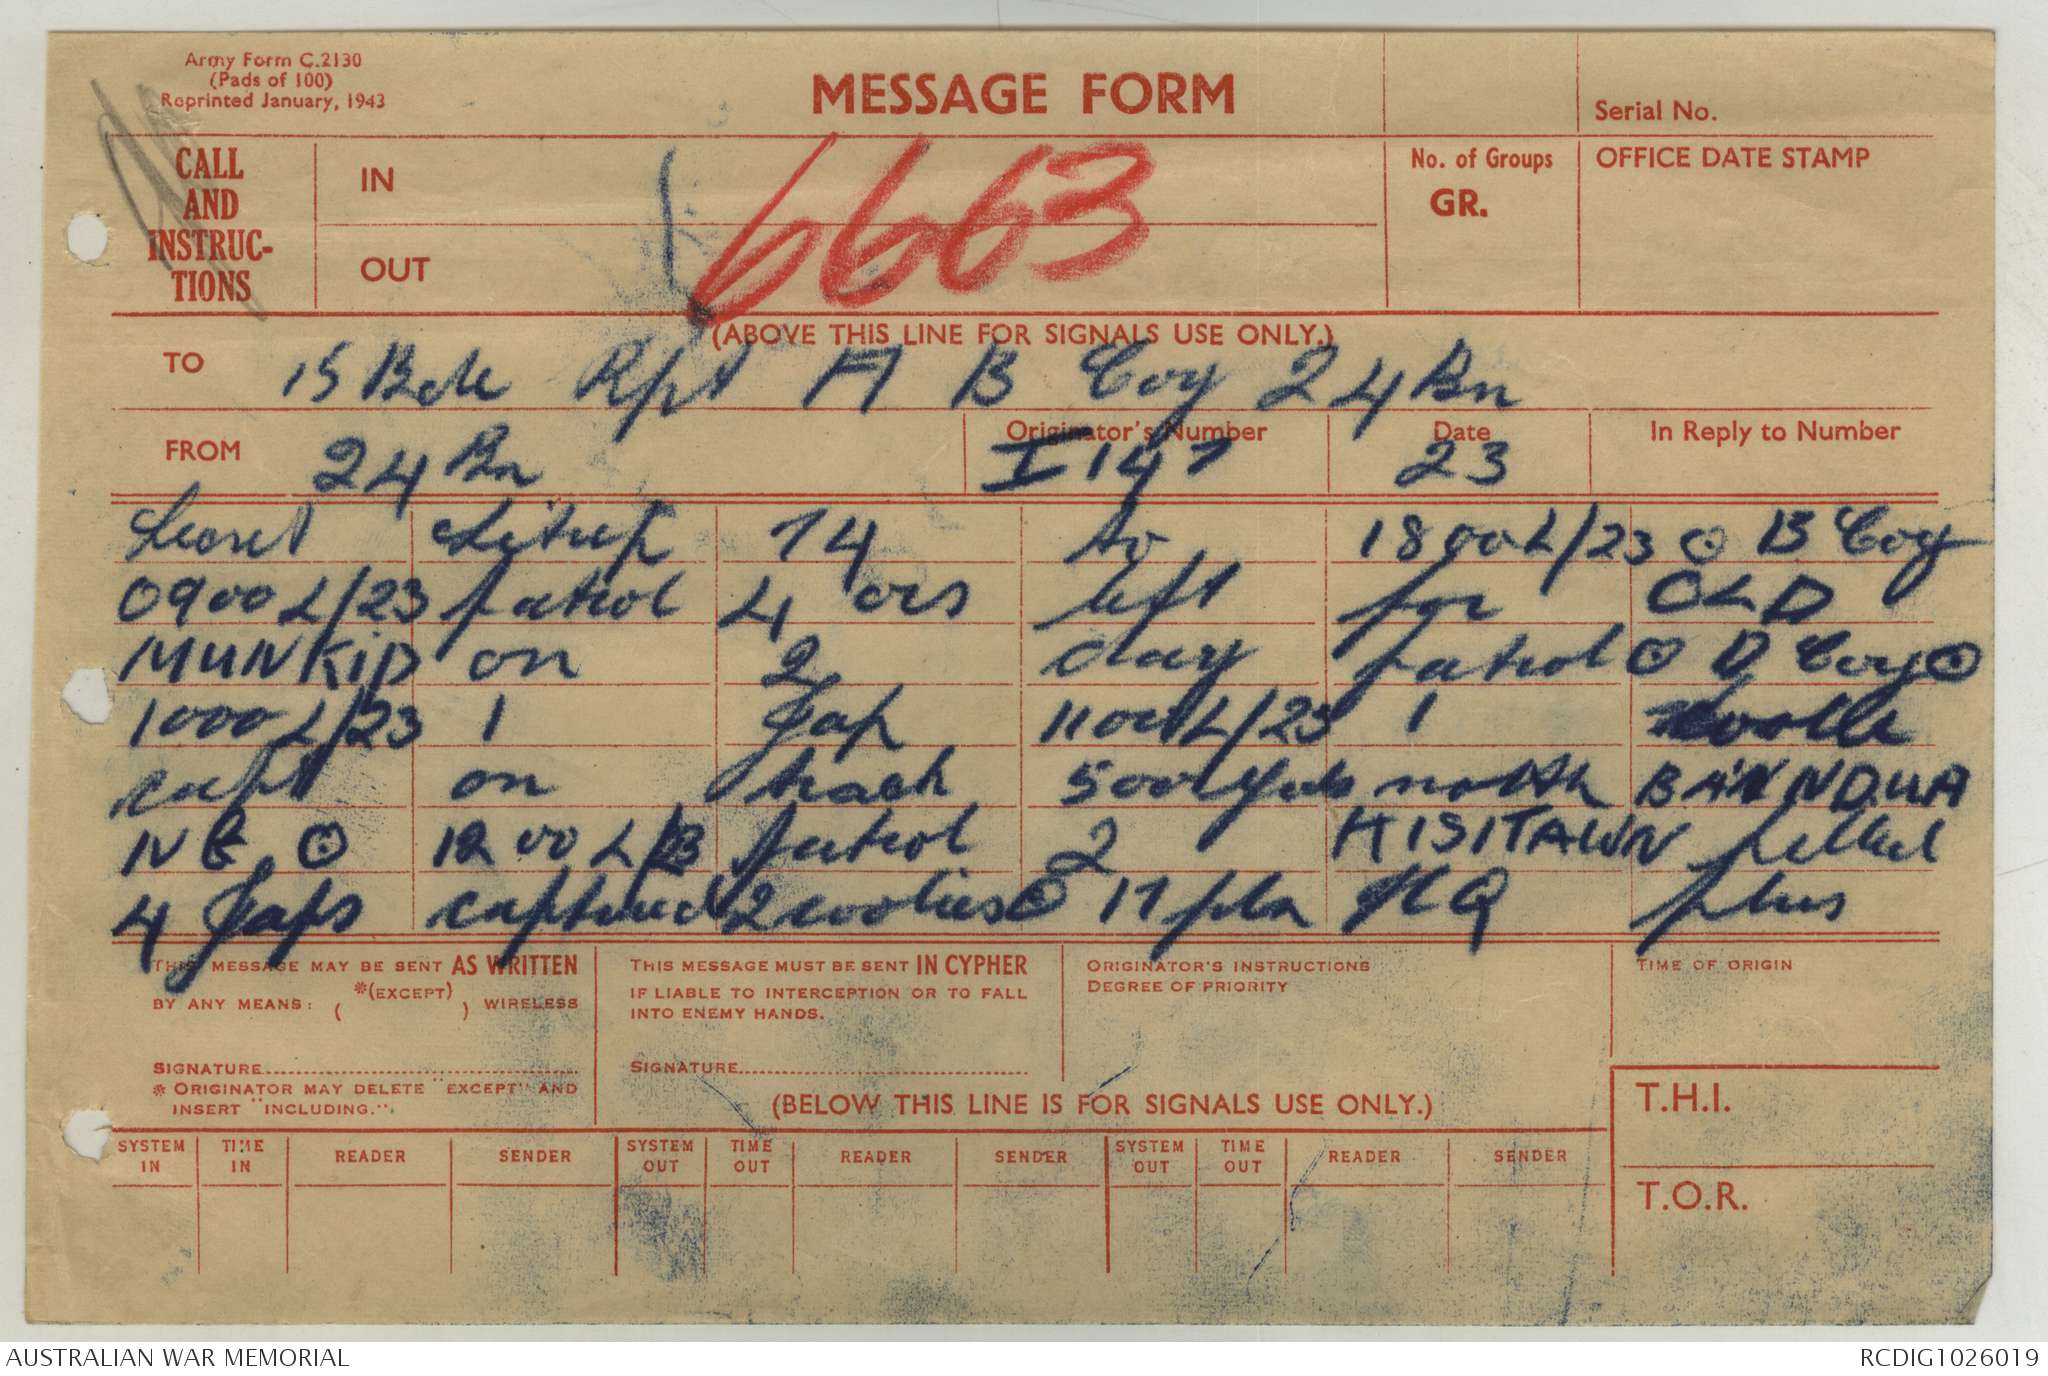 Army Form C.2130
(Pads of 100)
Reprinted January, 1943
MESSAGE FORM
Serial No.
CALL
AND
INSTRUC-
TIONS
IN
OUT
6663
No. of Groups
GR.
OFFICE DATE STAMP
(ABOVE THIS LINE FOR SIGNALS USE ONLY.)
TO 15 Bde Rpt A B Coy 24 Bn
FROM 24 Bn
Originator's Number I 147
Date 23
In Reply to Number
Secret Sitrep 74 to 1800L/23 ⊙ B Coy
0900L/23 patrol 4 ors left for OLD
MUNKID on 2 day patrol ⊙ D Coy ⊙
1000L/23 1 Jap 1100L/23 1
capt on track 500 yds north BANNDUA
NE ⊙ 1200L/23 patrol 2 KISITAWN killed
4 Japs captured 2 coolies ⊙ 17 pln HQ plus
THIS MESSAGE MAY BE SENT AS WRITTEN
BY ANY MEANS: ( *(EXCEPT) ) WIRELESS
SIGNATURE
* ORIGINATOR MAY DELETE "EXCEPT" AND
INSERT "INCLUDING."
THIS MESSAGE MUST BE SENT IN CYPHER
IF LIABLE TO INTERCEPTION OR TO FALL
INTO ENEMY HANDS.
SIGNATURE
ORIGINATOR'S INSTRUCTIONS
DEGREE OF PRIORITY
TIME OF ORIGIN
(BELOW THIS LINE IS FOR SIGNALS USE ONLY.)
T.H.I.
T.O.R.
SYSTEM IN TIME IN READER SENDER SYSTEM OUT TIME OUT READER SENDER SYSTEM OUT TIME OUT READER SENDER
AUSTRALIAN WAR MEMORIAL
RCDIG1026019